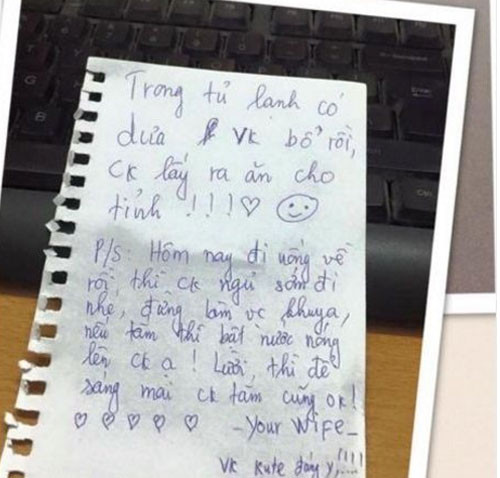 Trong tủ lạnh có
dưa VK bổ rồi,
CK lấy ra ăn cho
tỉnh !!!♡
P/S: Hôm nay đi uống về
rồi, thì CK ngủ sớm đi
nhé, đừng làm vc khuya,
nếu tắm thì bật nước nóng
lên CK ạ! Lười, thì để
sáng mai CK tắm cũng OK!
♡ ♡ ♡ ♡ ♡ - Your Wife -
VK Kute đáng y,!!!!